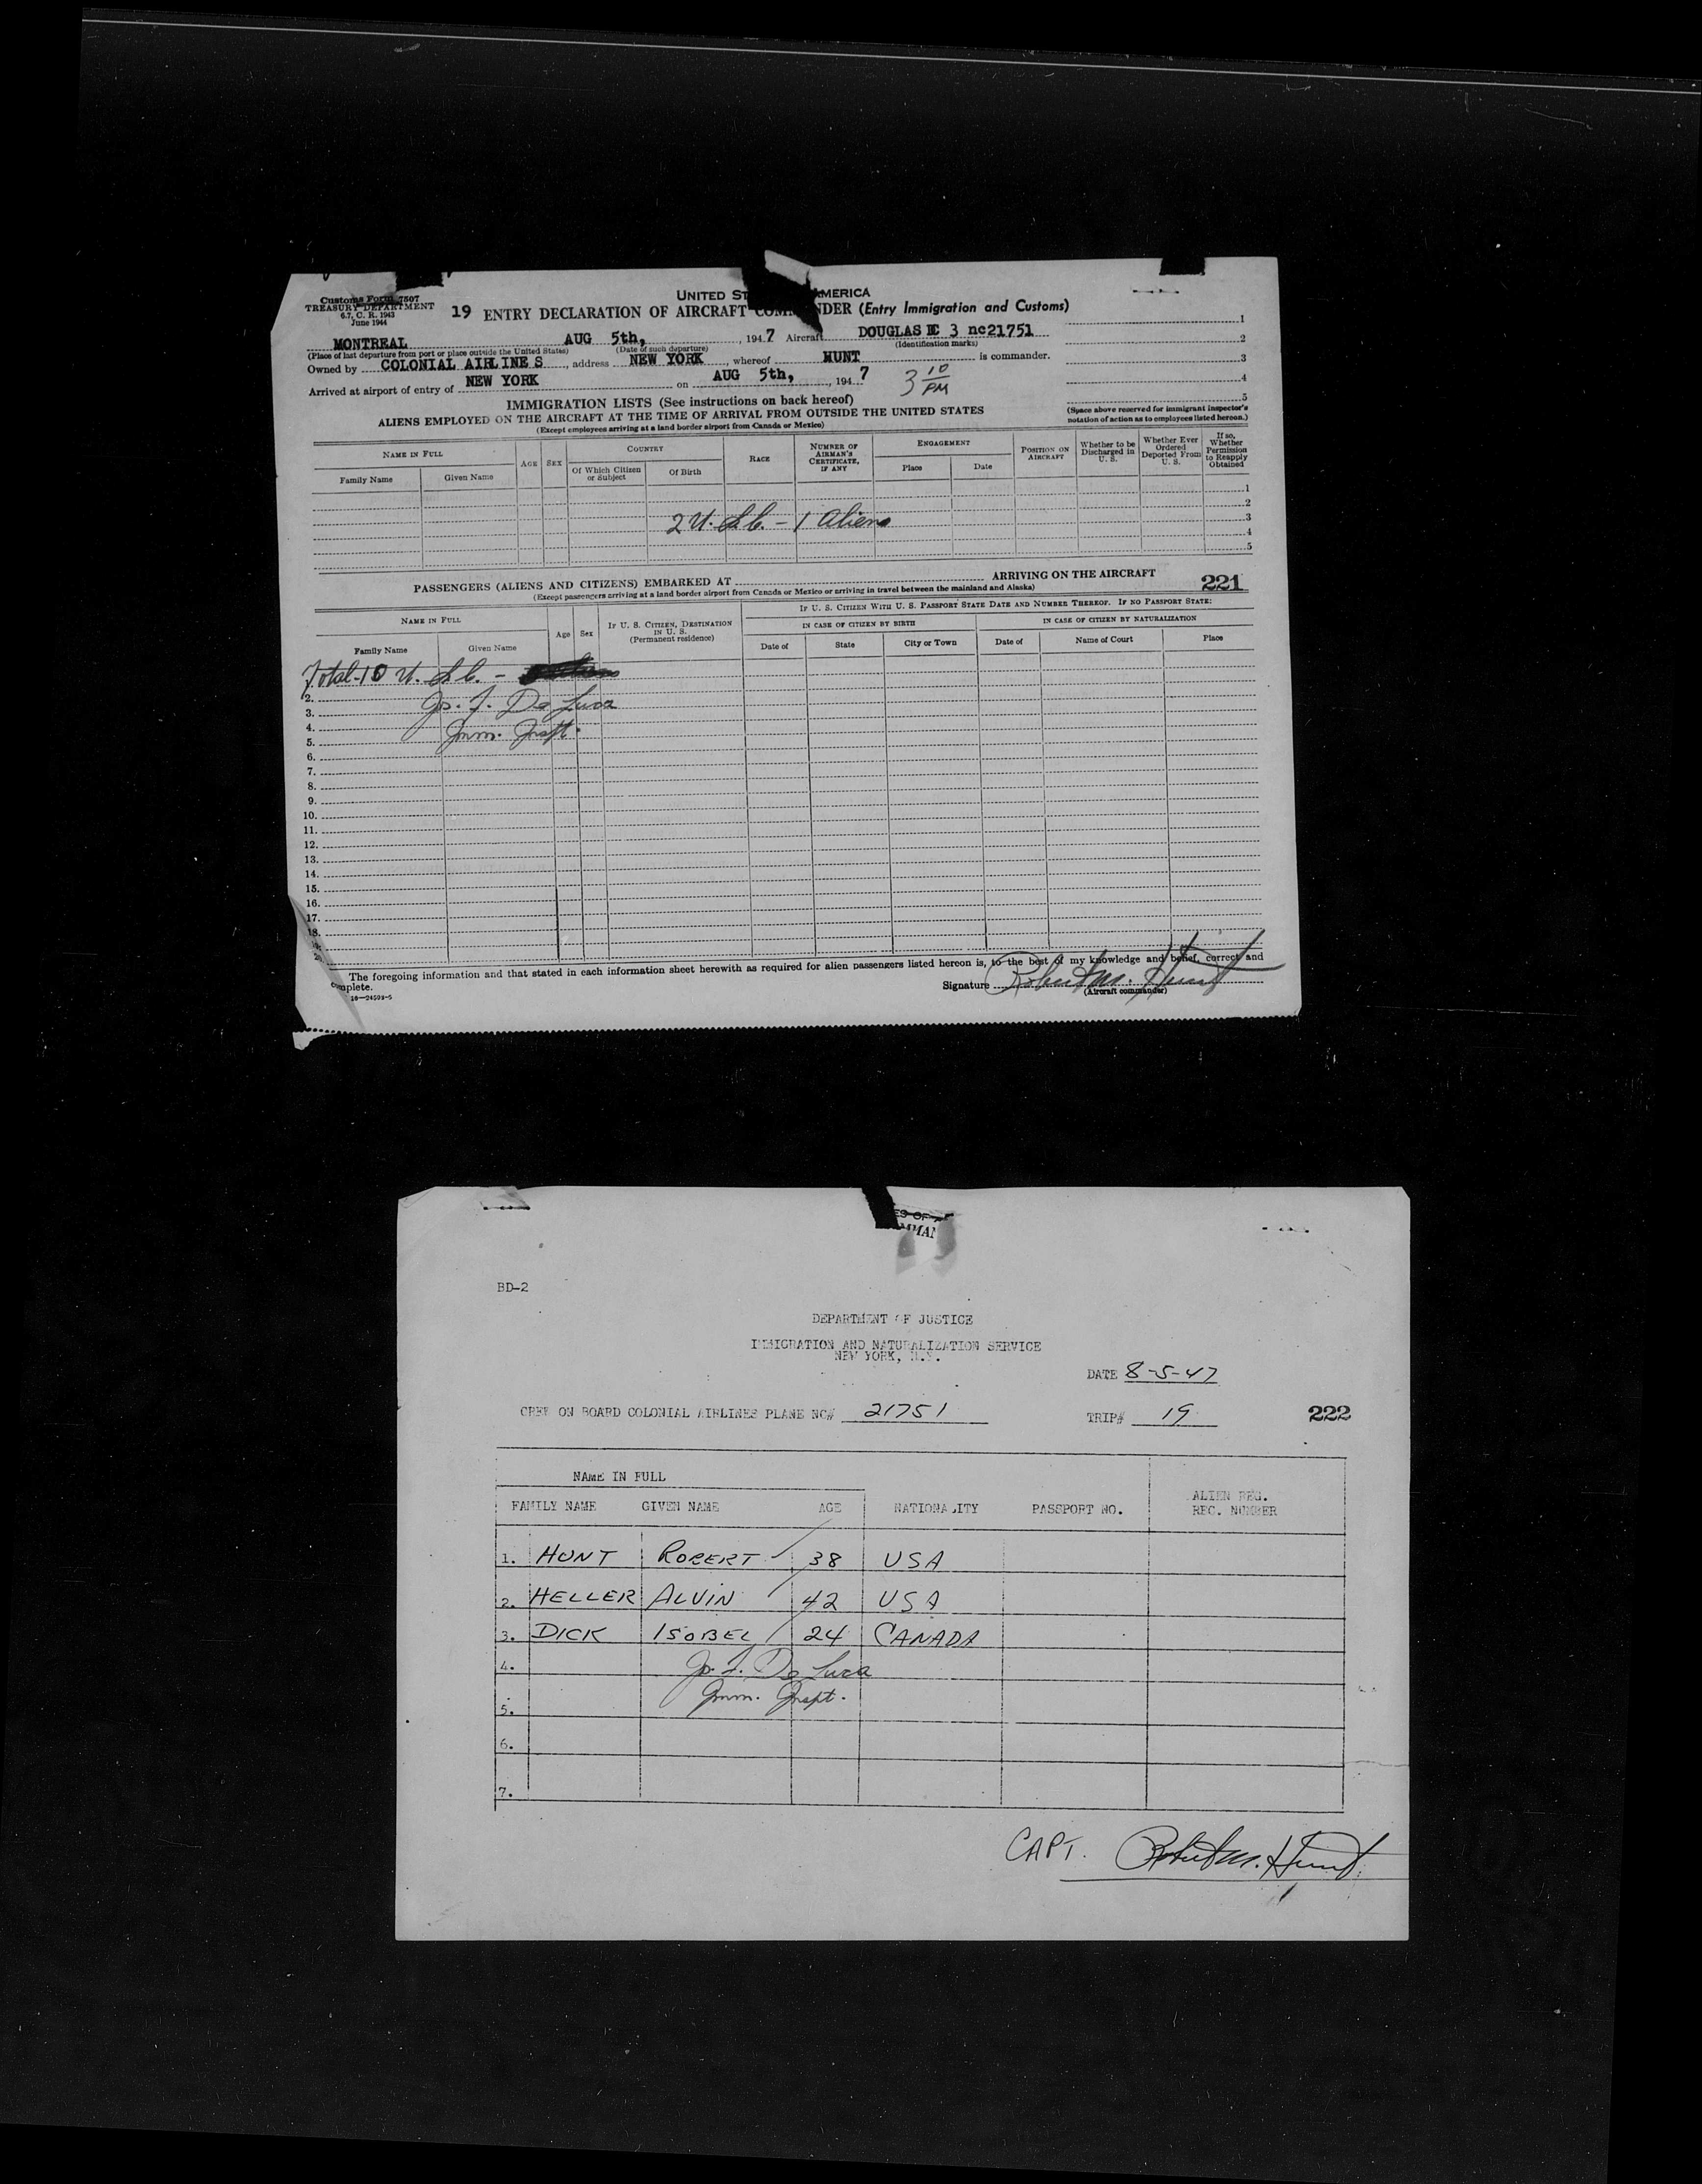 Customs Form 7507
TREASURY DEPARTMENT
6.7, C. R. 1943
June 1944
UNITED ST AMERICA
19 ENTRY DECLARATION OF AIRCRAFT COMMANDER (Entry Immigration and Customs)
MONTREAL AUG 5th, , 1947 Aircraft DOUGLAS DC 3 nc21751
(Place of last departure from port or place outside the United States) (Date of such departure) (Identification marks)
Owned by COLONIAL AIRLINES, address NEW YORK, whereof HUNT is commander.
Arrived at airport of entry of NEW YORK on AUG 5th, , 1947 3 10 PM
1
2
3
4
5
(Space above reserved for immigrant inspector's notation of action as to employees listed hereon.)
IMMIGRATION LISTS (See instructions on back hereof)
ALIENS EMPLOYED ON THE AIRCRAFT AT THE TIME OF ARRIVAL FROM OUTSIDE THE UNITED STATES
(Except employees arriving at a land border airport from Canada or Mexico)
NAME IN FULL AGE SEX COUNTRY RACE NUMBER OF AIRMAN'S CERTIFICATE, IF ANY ENGAGEMENT POSITION ON AIRCRAFT Whether to be Discharged in U. S. Whether Ever Ordered Deported From U. S. If so, Whether Permission to Reapply Obtained
Family Name Given Name Of Which Citizen or Subject Of Birth Place Date
1
2
2 U. S. C. - 1 Aliens 3
4
5
PASSENGERS (ALIENS AND CITIZENS) EMBARKED AT ARRIVING ON THE AIRCRAFT 221
(Except passengers arriving at a land border airport from Canada or Mexico or arriving in travel between the mainland and Alaska)
NAME IN FULL Age Sex IF U. S. CITIZEN, DESTINATION IN U. S. (Permanent residence) IF U. S. CITIZEN WITH U. S. PASSPORT STATE DATE AND NUMBER THEREOF. IF NO PASSPORT STATE:
IN CASE OF CITIZEN BY BIRTH IN CASE OF CITIZEN BY NATURALIZATION
Family Name Given Name Date of State City or Town Date of Name of Court Place
Total-10 U. S. C. -
2. Jo. F. De Luca
3.
4. Imm. Inspt.
5.
6.
7.
8.
9.
10.
11.
12.
13.
14.
15.
16.
17.
18.
The foregoing information and that stated in each information sheet herewith as required for alien passengers listed hereon is, to the best of my knowledge and belief, correct and
complete.
16—24593-5
Signature Robert M. Hunt
(Aircraft commander)
BD-2
DEPARTMENT OF JUSTICE
IMMIGRATION AND NATURALIZATION SERVICE
NEW YORK, N.Y.
DATE 8-5-47
CREW ON BOARD COLONIAL AIRLINES PLANE NC# 21751 TRIP# 19 222
NAME IN FULL
FAMILY NAME GIVEN NAME AGE NATIONALITY PASSPORT NO. ALIEN REG. REC. NUMBER
1. HUNT ROBERT 38 USA
2. HELLER ALVIN 42 USA
3. DICK ISOBEL 24 CANADA
4. Jo. F. De Luca
5. Imm. Inspt.
6.
7.
CAPT. Robert M. Hunt